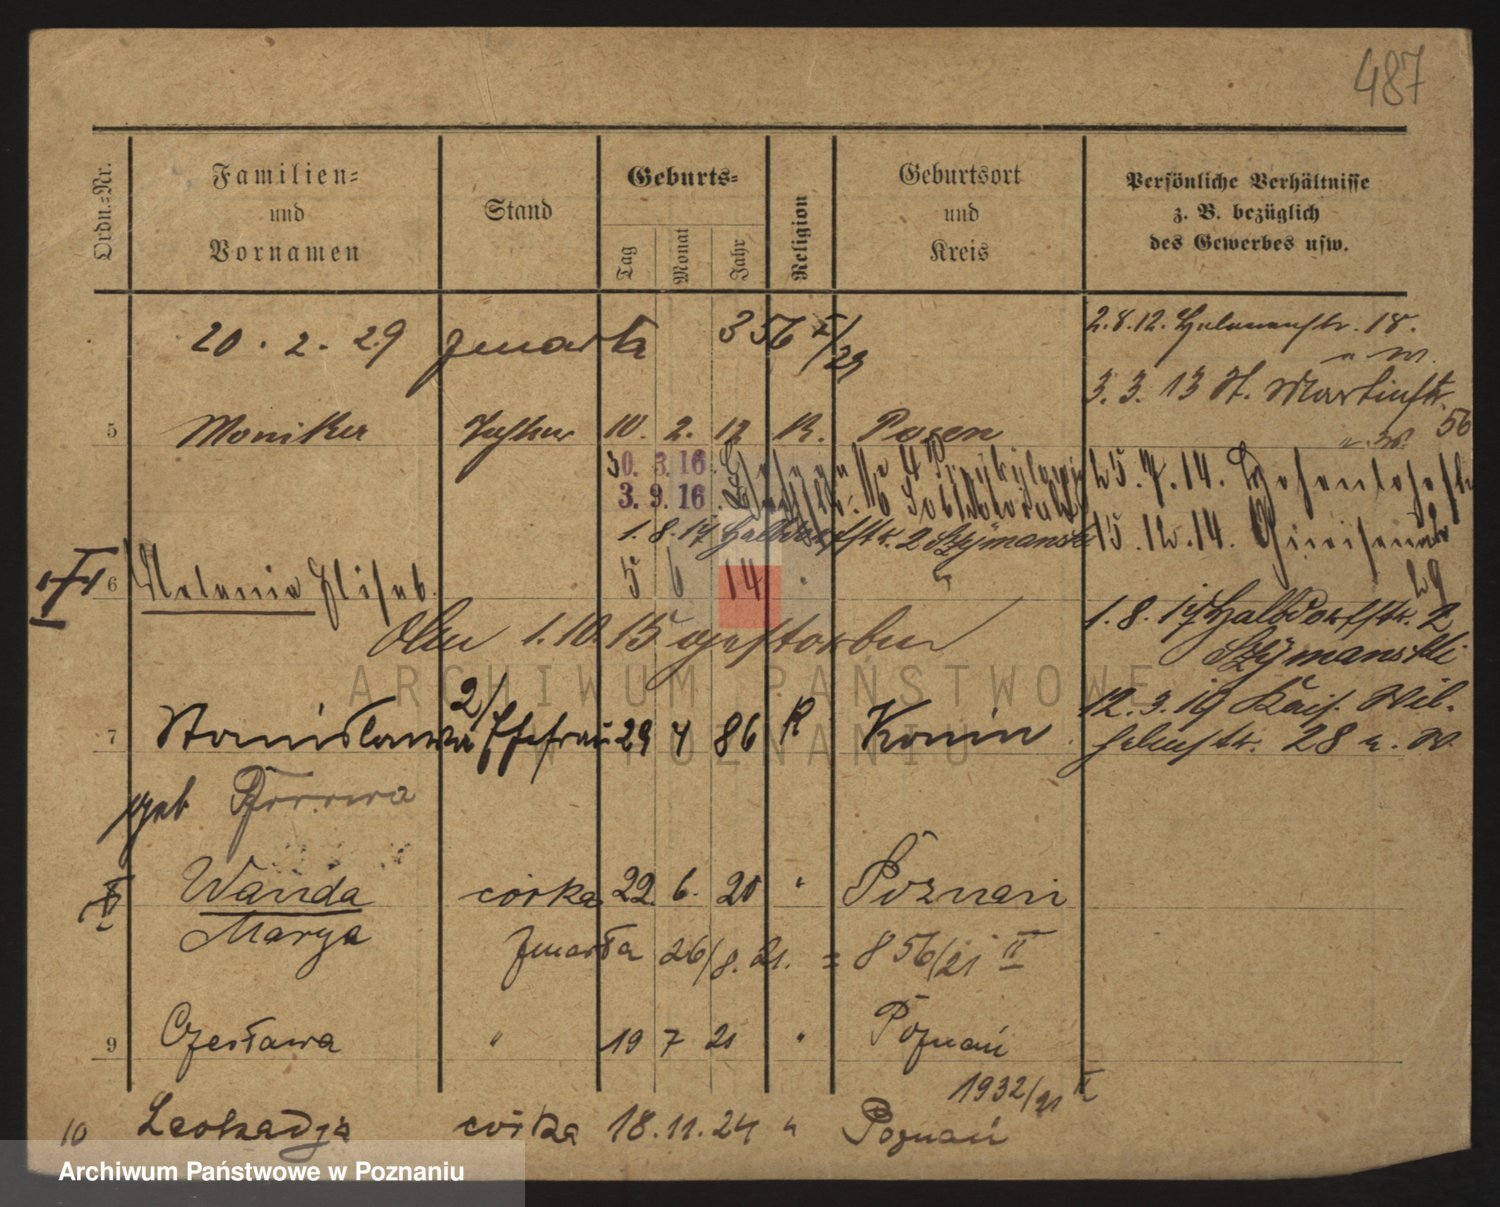 487
Ordn.-Nr.
Familien-
und
Vornamen
Stand
Geburts-
Tag
Monat
Jahr
Religion
Geburtsort
und
Kreis
Persönliche Verhältnisse
z. B. bezüglich
des Gewerbes usw.
20. 2. 29 zmarła 356 I/29
2.8.12. Helenenstr. 18.
3. 3. 13 St. Martinstr. 56
5 Monika Tochter 10. 2. 12 R. Posen
30. 3. 16.
25. 7. 14. Hohenlohestr
3. 9. 16.
15. 12. 14. Gneisenaustr 29
1. 8. 17 Halbdorfstr. 2 Szymanski
6 Melania Elisab. 5 6 14
1. 8. 17 Halbdorfstr. 2
Szymanski
Am 1.10.15 gestorben
12. 3. 19 Kais. Wil-
helmstr. 28
ARCHIWUM PAŃSTWOWE
W POZNANIU
7 Stanisława 2/ Ehefrau 29 4 86 R Konin
geb
Wanda córka 22. 6. 20 " Poznań
Marya
zmarła 26/8. 21. = 856/21 II
9 Czesława " 19 7 21 " Poznań
1932/21 II
10 Leokadja córka 18. 11. 24 " Poznań
Archiwum Państwowe w Poznaniu